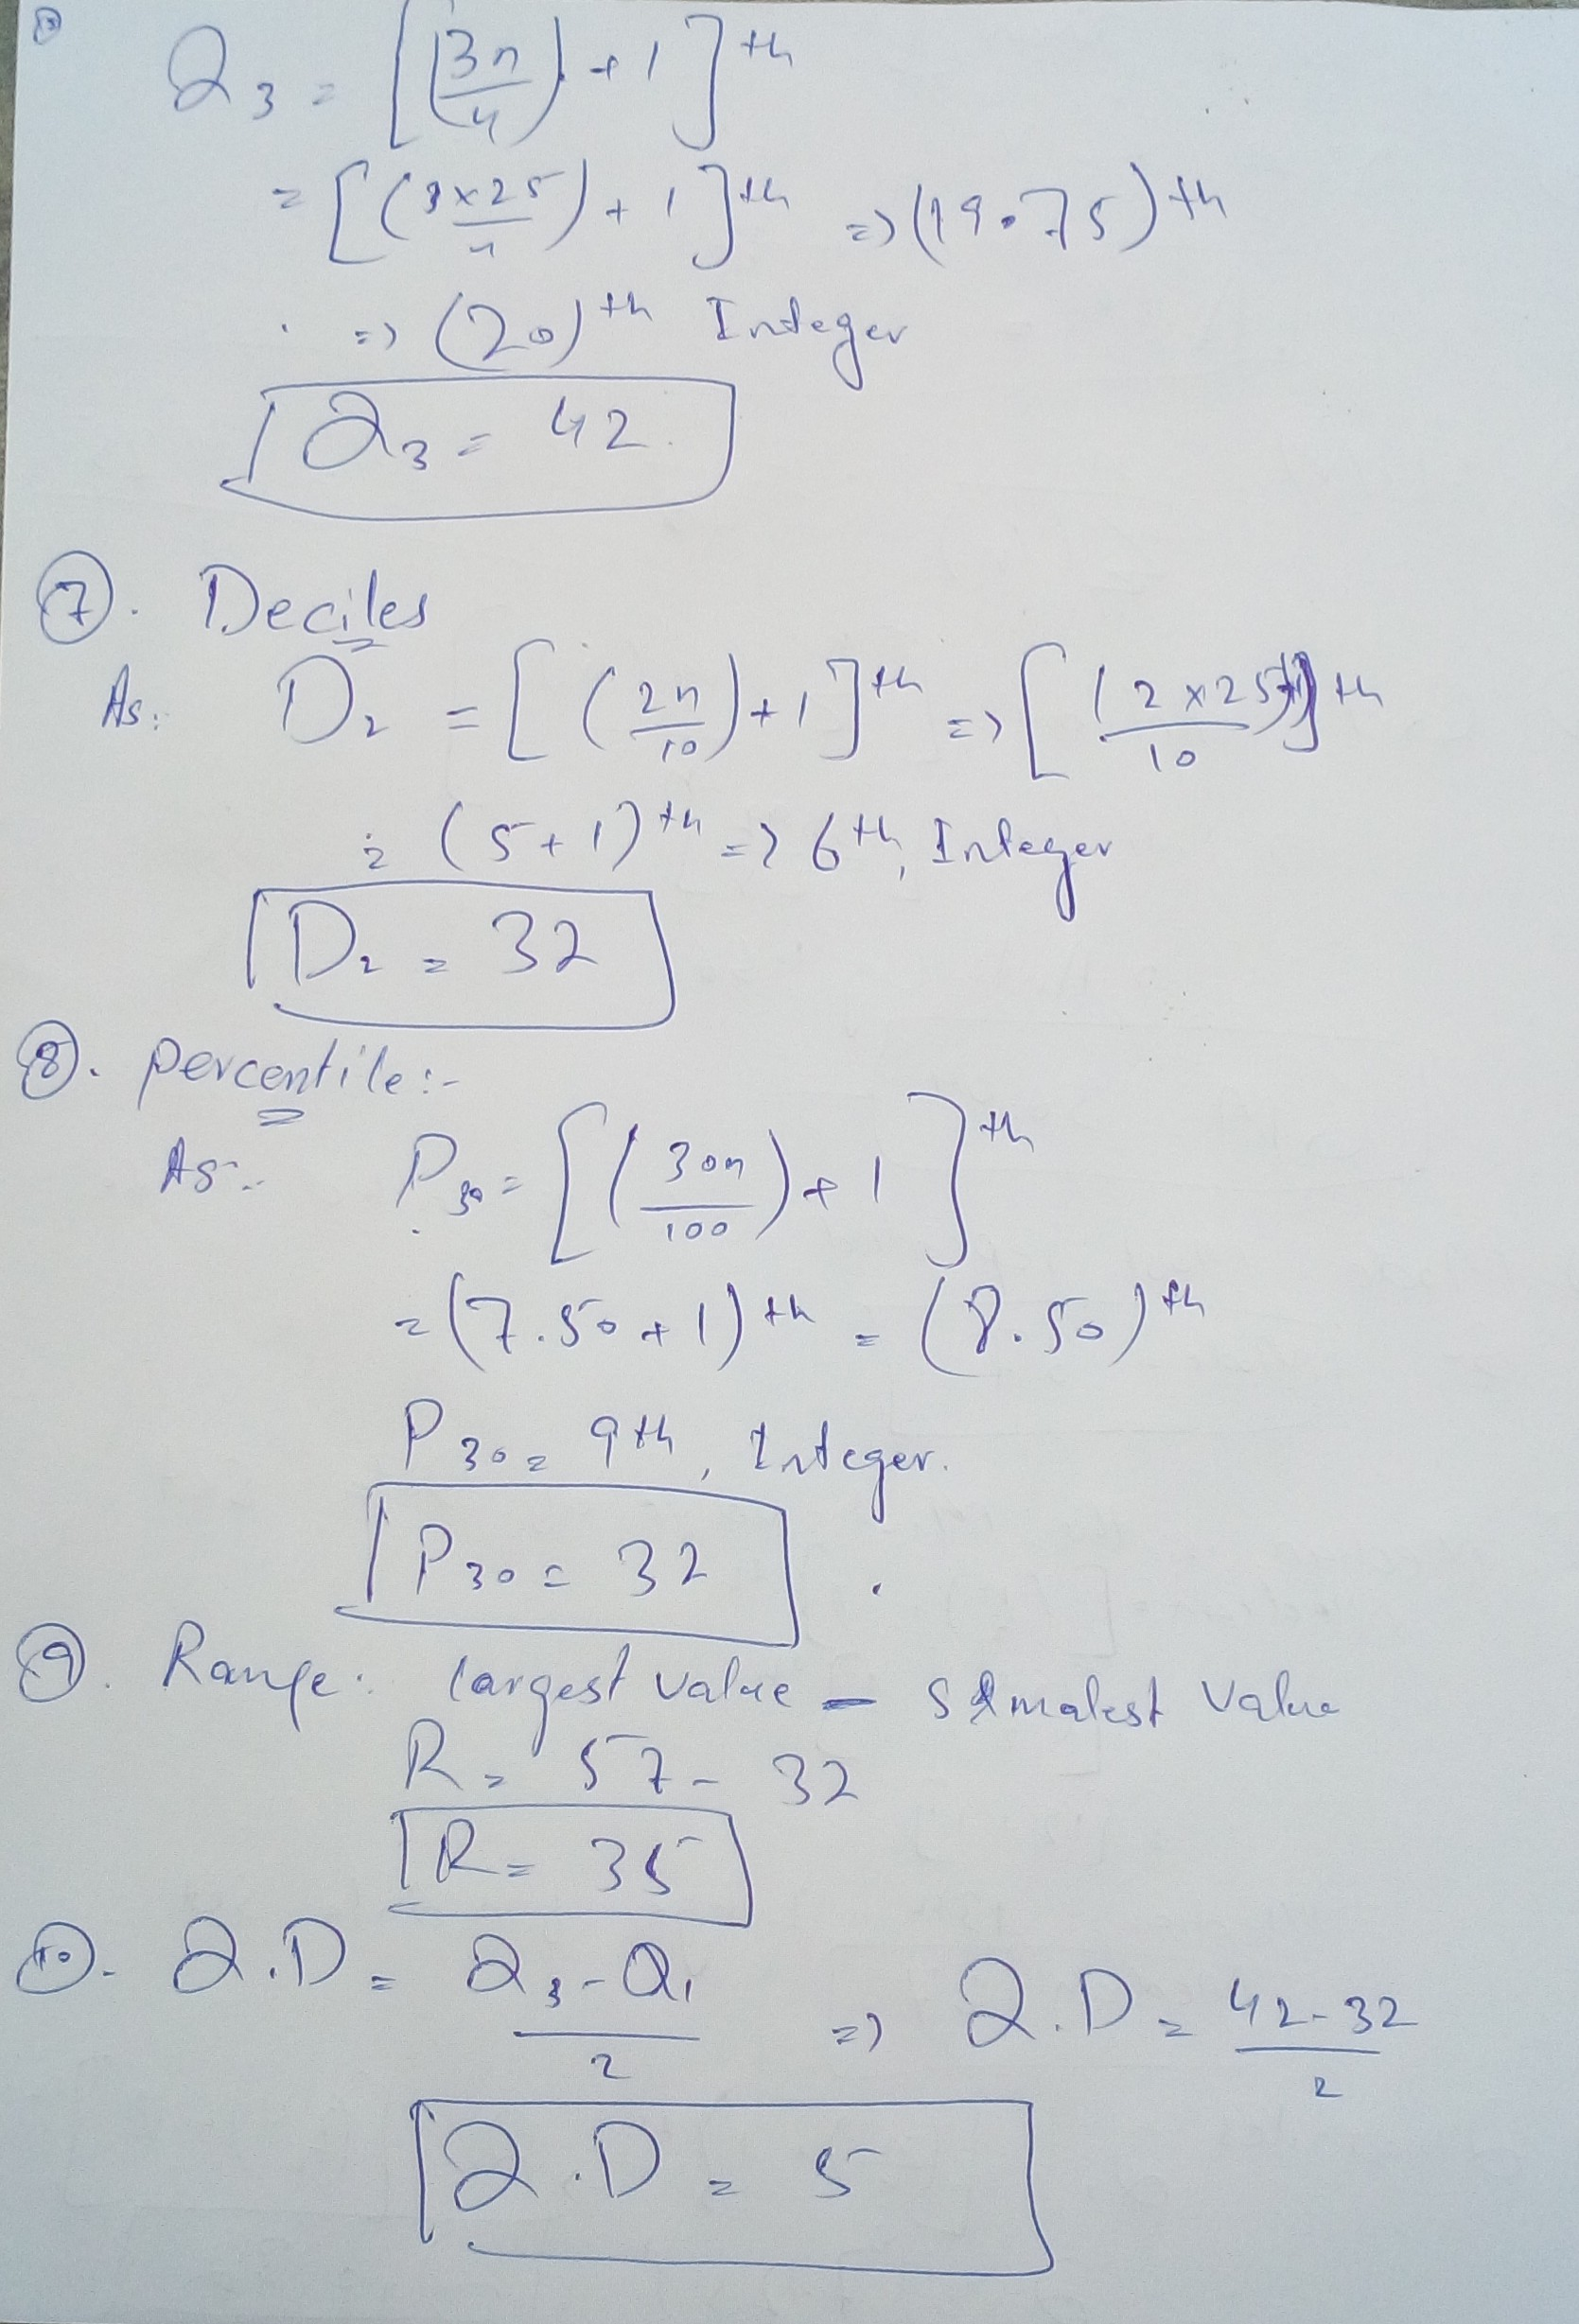 Q₃ = [(3n/4) + 1]th
= [(3×25/4) + 1]th => (19.75)th
=> (20)th Integer
Q₃ = 42.
⑦. Deciles
As: D₂ = [(2n/10) + 1]th => [(2×25/10)]th
= (5+1)th => 6th, Integer
D₂ = 32
⑧. percentile:-
As:- P₃₀ = [(30n/100) + 1]th
= (7.50+1)th = (8.50)th
P₃₀ = 9th, Integer.
P₃₀ = 32
⑨. Range: largest value - smalest value
R = 57 - 32
R = 35
⑩. Q.D = Q₃-Q₁/2 => Q.D = 42-32/2
Q.D = 5